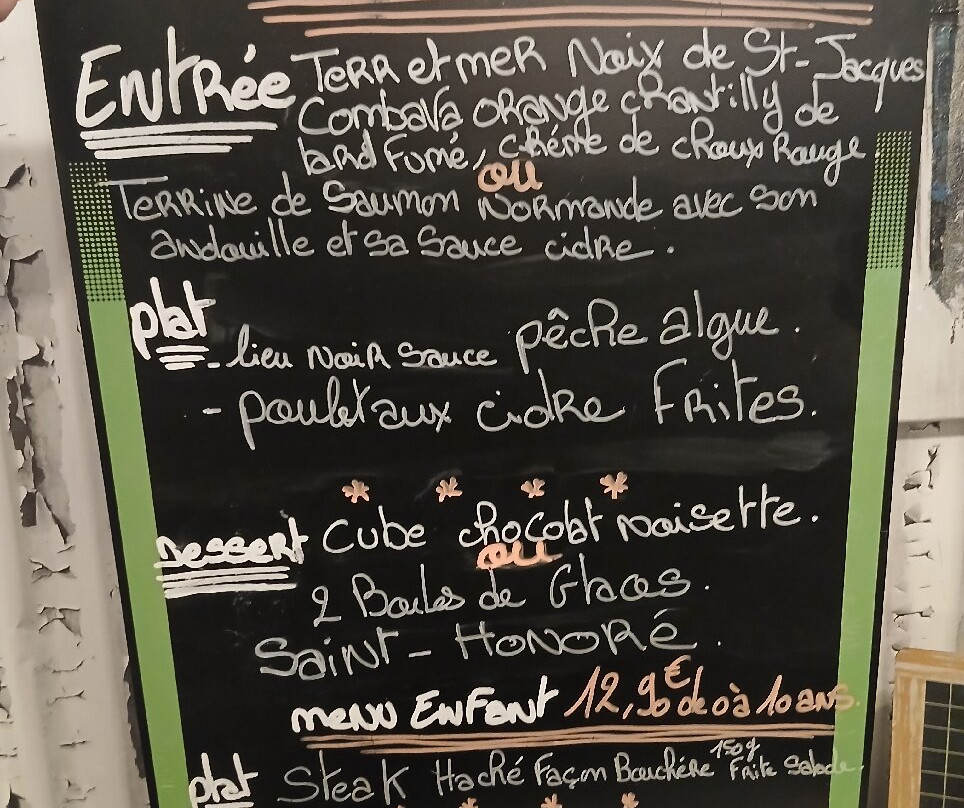 Entrée Terr et mer Noix de St-Jacques
Combava orange chantilly de
lard Fumé, créme de choux Rouge.
ou
Terrine de Saumon Normande avec son
andouille et sa sauce cidre.
plat
- lieu Noir sauce pêche algue.
- poulet aux cidre Frites.
* * * *
Dessert Cube chocolat noisette.
ou
2 Boules de Glaces.
Saint-Honoré.
menu Enfant 12,90€ de 0 à 10 ans.
plat Steak Haché Façon Bouchére 150g Frite Salade.
* * *